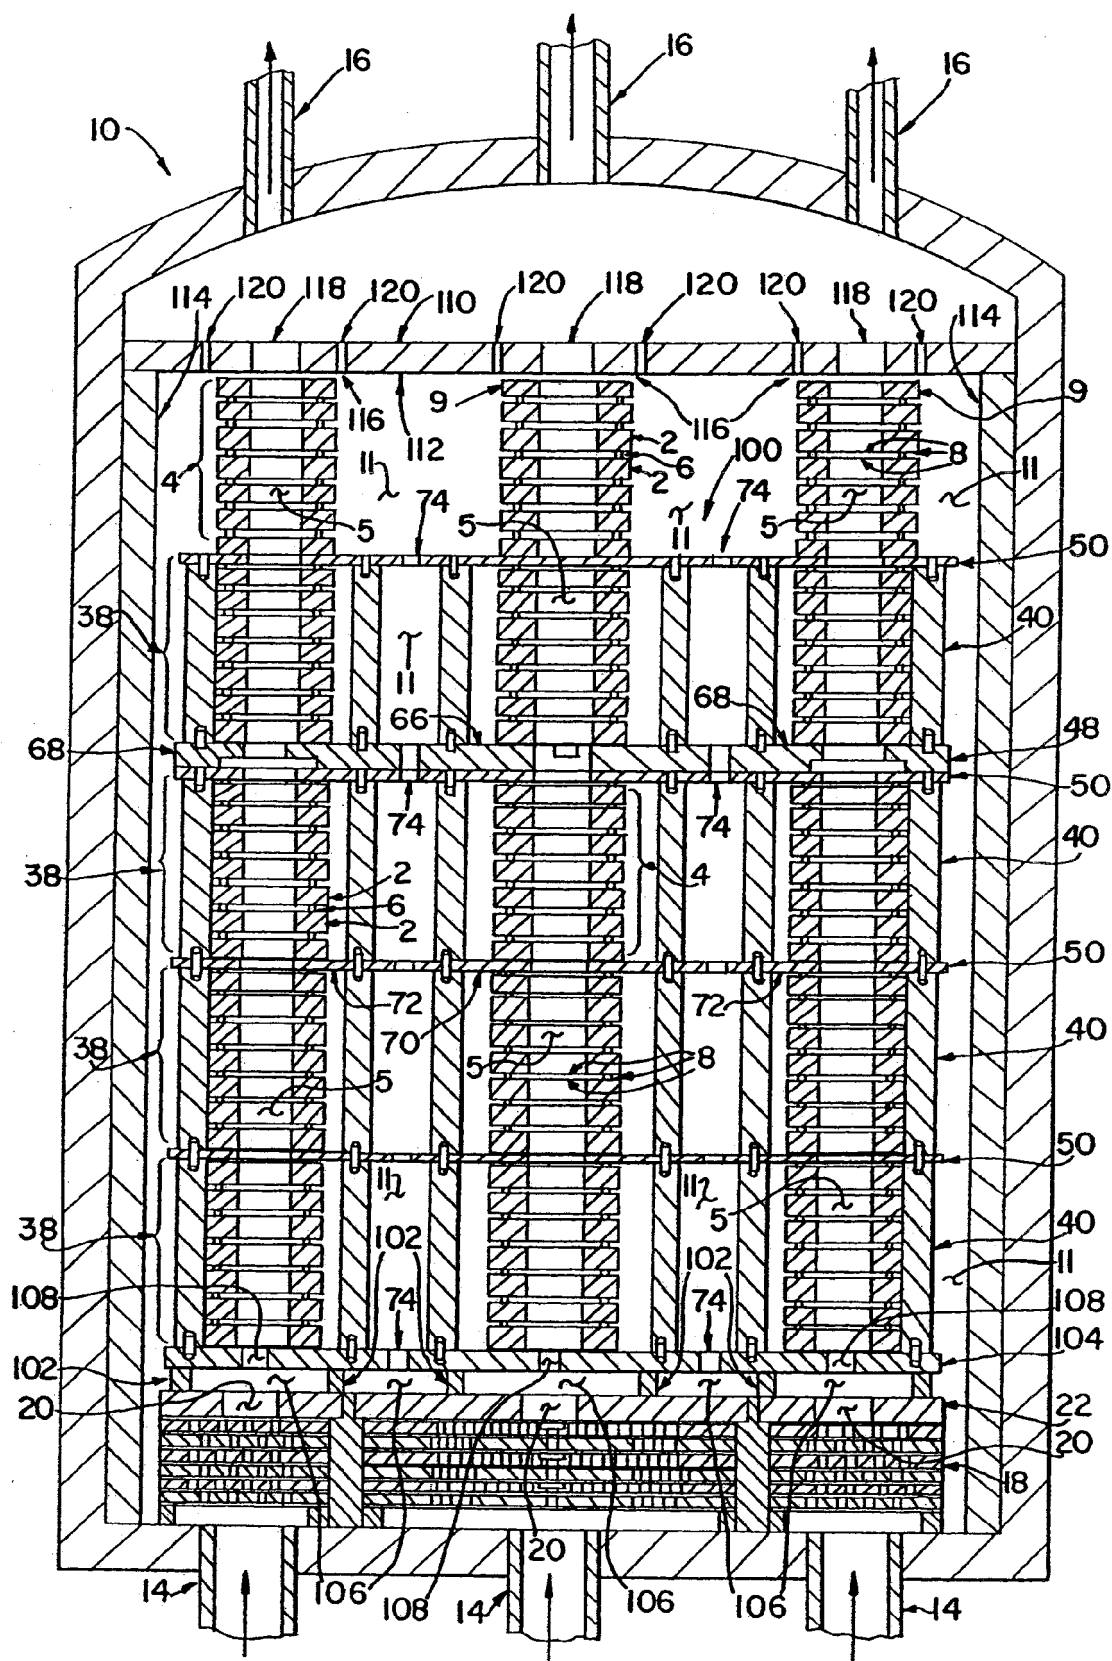 16
16
16
10
114
120
118
120
110
120
118
120
120
118
120
114
9
116
112
116
9
4
2
6
2
100
8
11
11
11
5
74
5
74
5
50
38
11
40
66
68
68
48
50
74
74
38
2
6
2
4
40
50
72
70
72
38
5
5
8
40
50
11
11
5
38
102
102
40
11
108
74
74
108
104
102
20
22
20
18
20
14
106
108
14
106
106
14